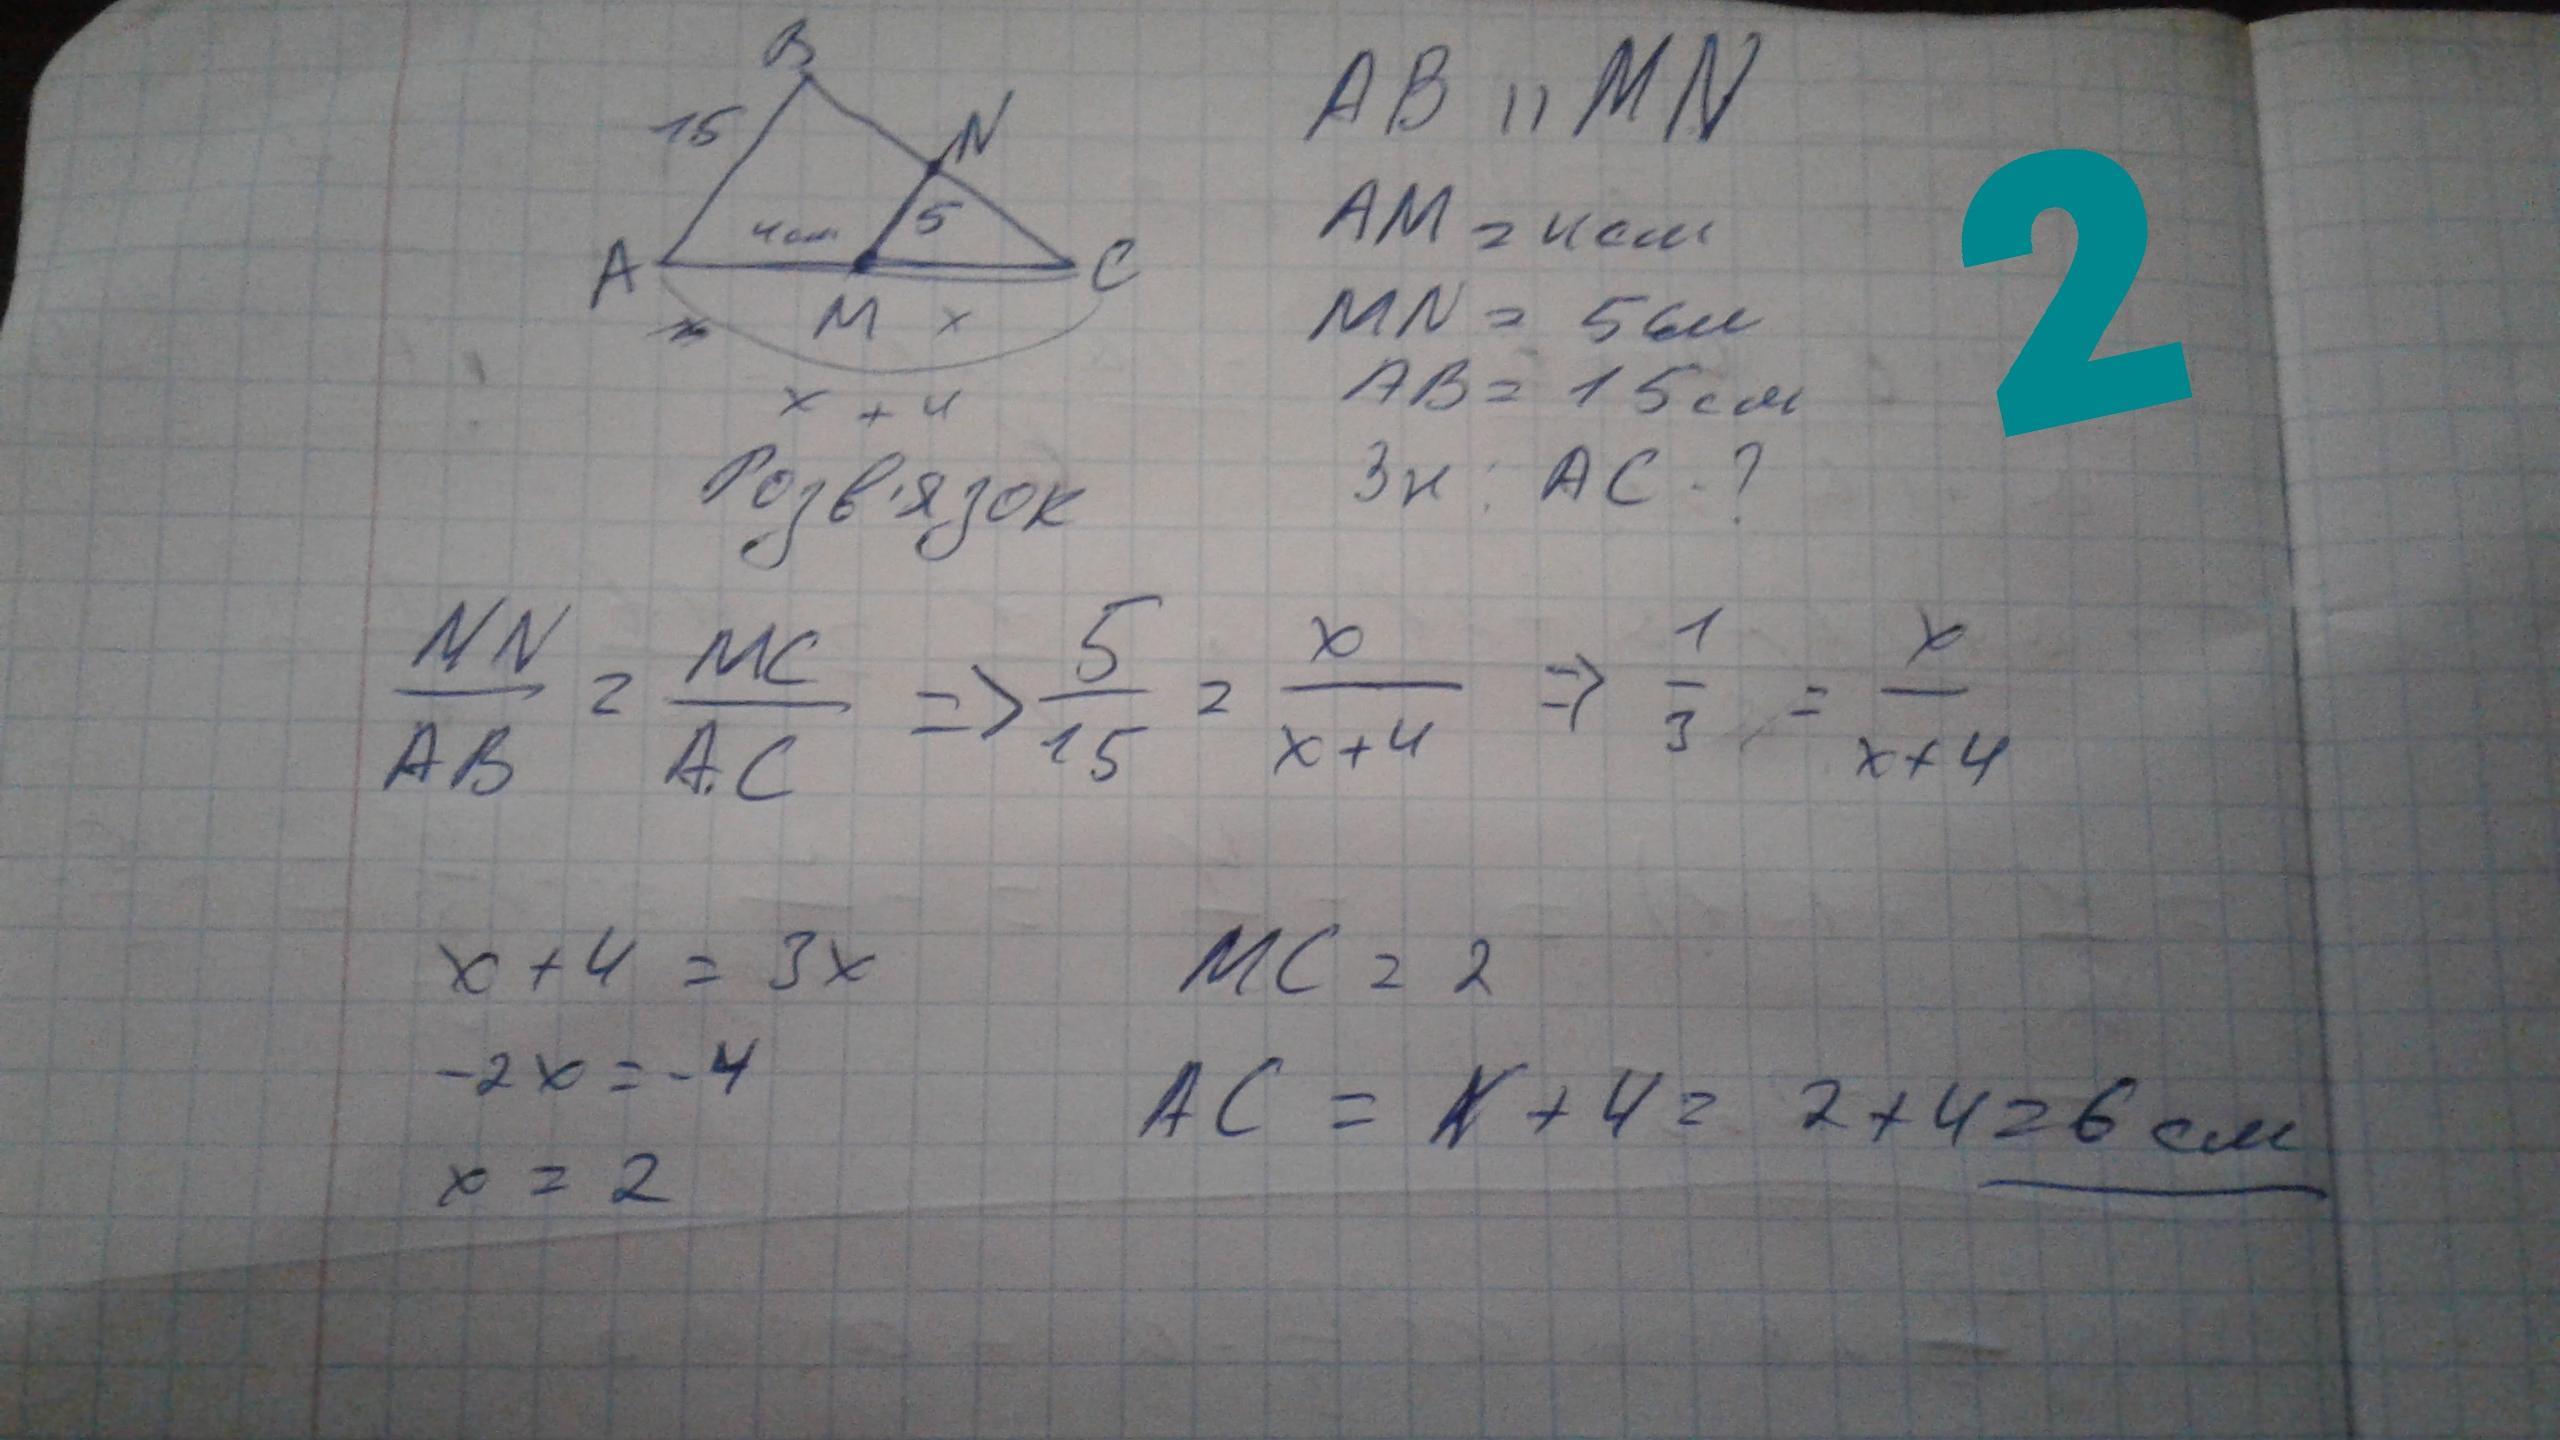 B
15
N
AB || MN
2
4см
5
AM = 4см
A
C
M
x
MN = 5см
x + 4
AB = 15см
Розв'язок
Зн: AC - ?
MN/AB = MC/AC => 5/15 = x/(x+4) => 1/3 = x/(x+4)
x + 4 = 3x
MC = 2
-2x = -4
AC = x + 4 = 2 + 4 = 6 см
x = 2